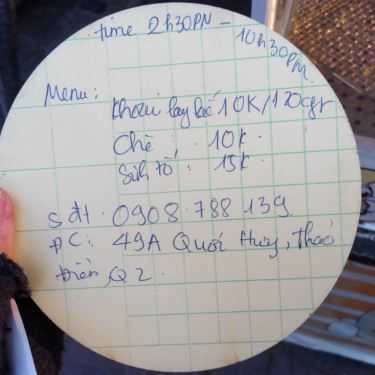 time 2h30PM - 10h30PM
Menu:
Khoai lay lắc 10K/120gr
Chè. 10K.
Sinh tố: 15K.
sđt. 0908 788 139
ĐC: 49A Quối Huy, Thảo
Điền Q2.